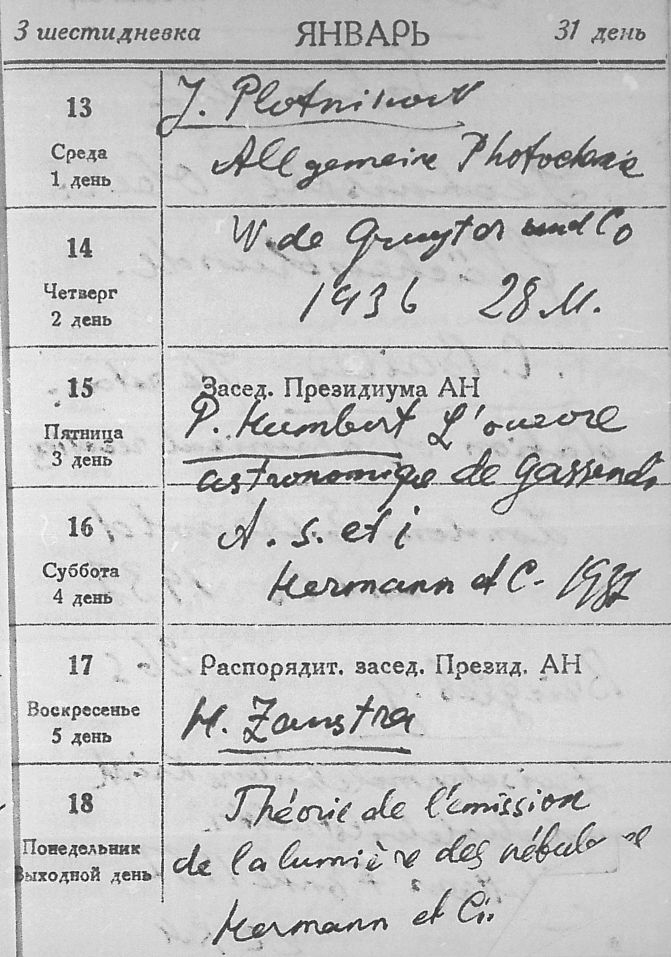 3 шестидневка ЯНВАРЬ 31 день
13
Среда
1 день
J. Plotnikow
Allgemeine Photochemie
14
Четверг
2 день
W. de Gruyter und Co
1936 28 M.
15
Пятница
3 день
Засед. Президиума АН
P. Humbert L'œuvre
astronomique de Gassendi
16
Суббота
4 день
A. s. et i
Hermann et C. 1937
17
Воскресенье
5 день
Распорядит. засед. Презид. АН
H. Zanstra
18
Понедельник
Выходной день
Théorie de l'émission
de la lumière des nébuleuse
Hermann et Ci.